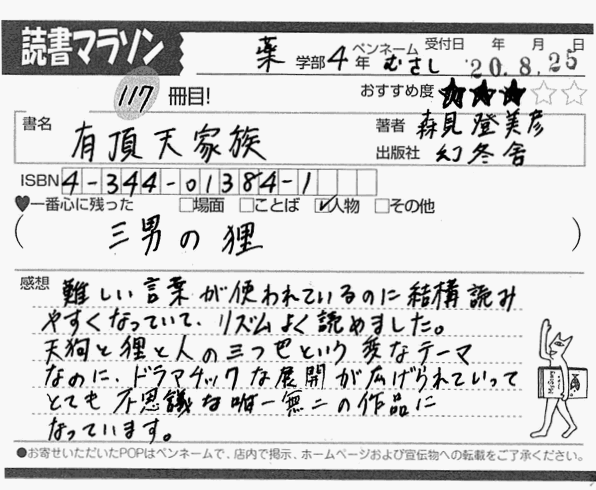 読書マラソン
薬 学部 4 年 ペンネーム むさし 受付日 年 月 日 20.8.25
117 冊目! おすすめ度 ★★★☆☆
書名 有頂天家族 著者 森見登美彦
出版社 幻冬舎
ISBN 4-344-01384-1
♥一番心に残った □場面 □ことば ☑人物 □その他
( 三男の狸 )
感想 難しい言葉が使われているのに結構読み
やすくなっていて、リズムよく読めました。
天狗と狸と人の三つ巴という変なテーマ
なのに、ドラマチックな展開が広げられていって
とても不思議な唯一無二の作品に
なっています。
●お寄せいただいたPOPはペンネームで、店内で掲示、ホームページおよび宣伝物への転載をご了承ください。